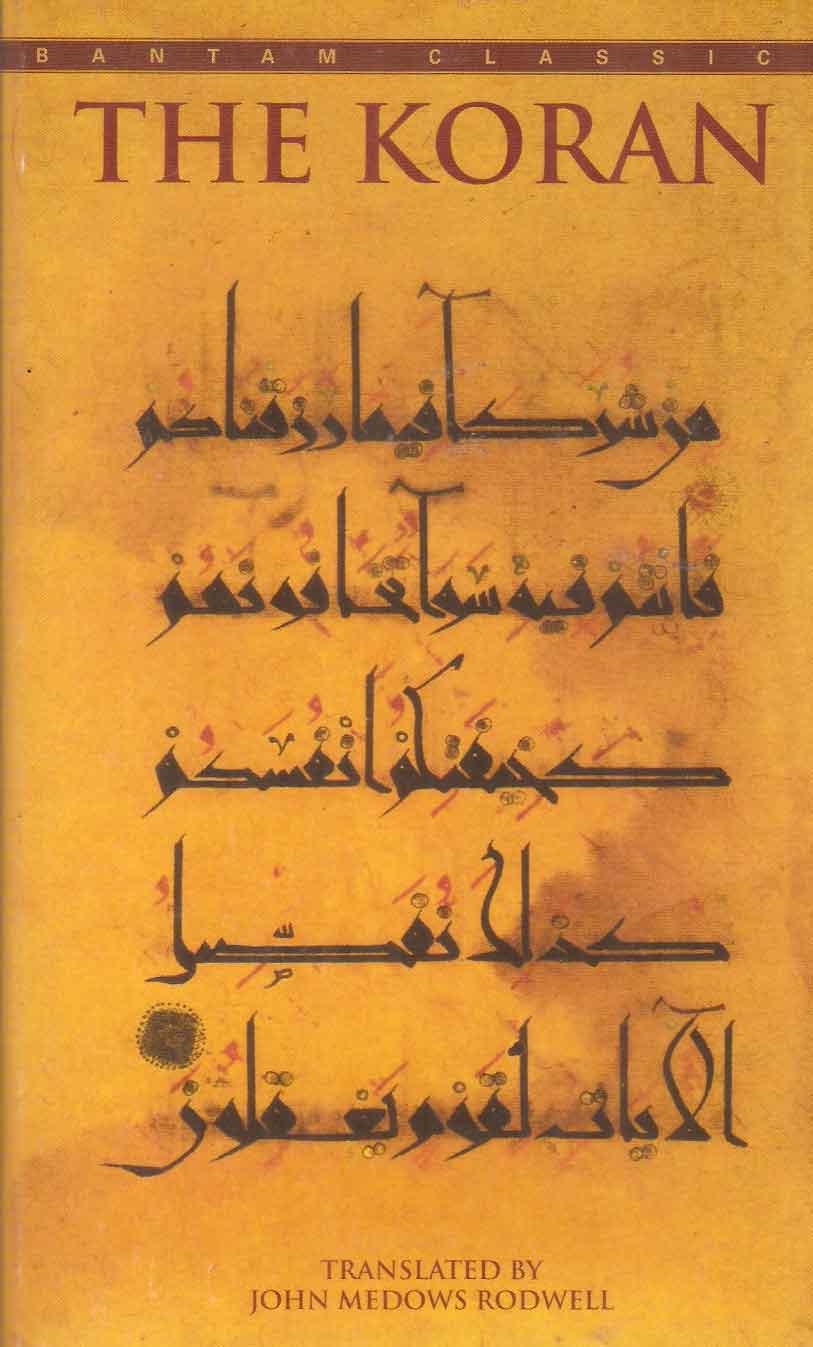 BANTAM CLASSIC
THE KORAN
من شركآ فيما رزقناكم
فأنتم فيه سوآ تخافونهم
كخيفتكم أنفسكم
كذلك نفصل
الآيات لقوم يعقلون
TRANSLATED BY
JOHN MEDOWS RODWELL